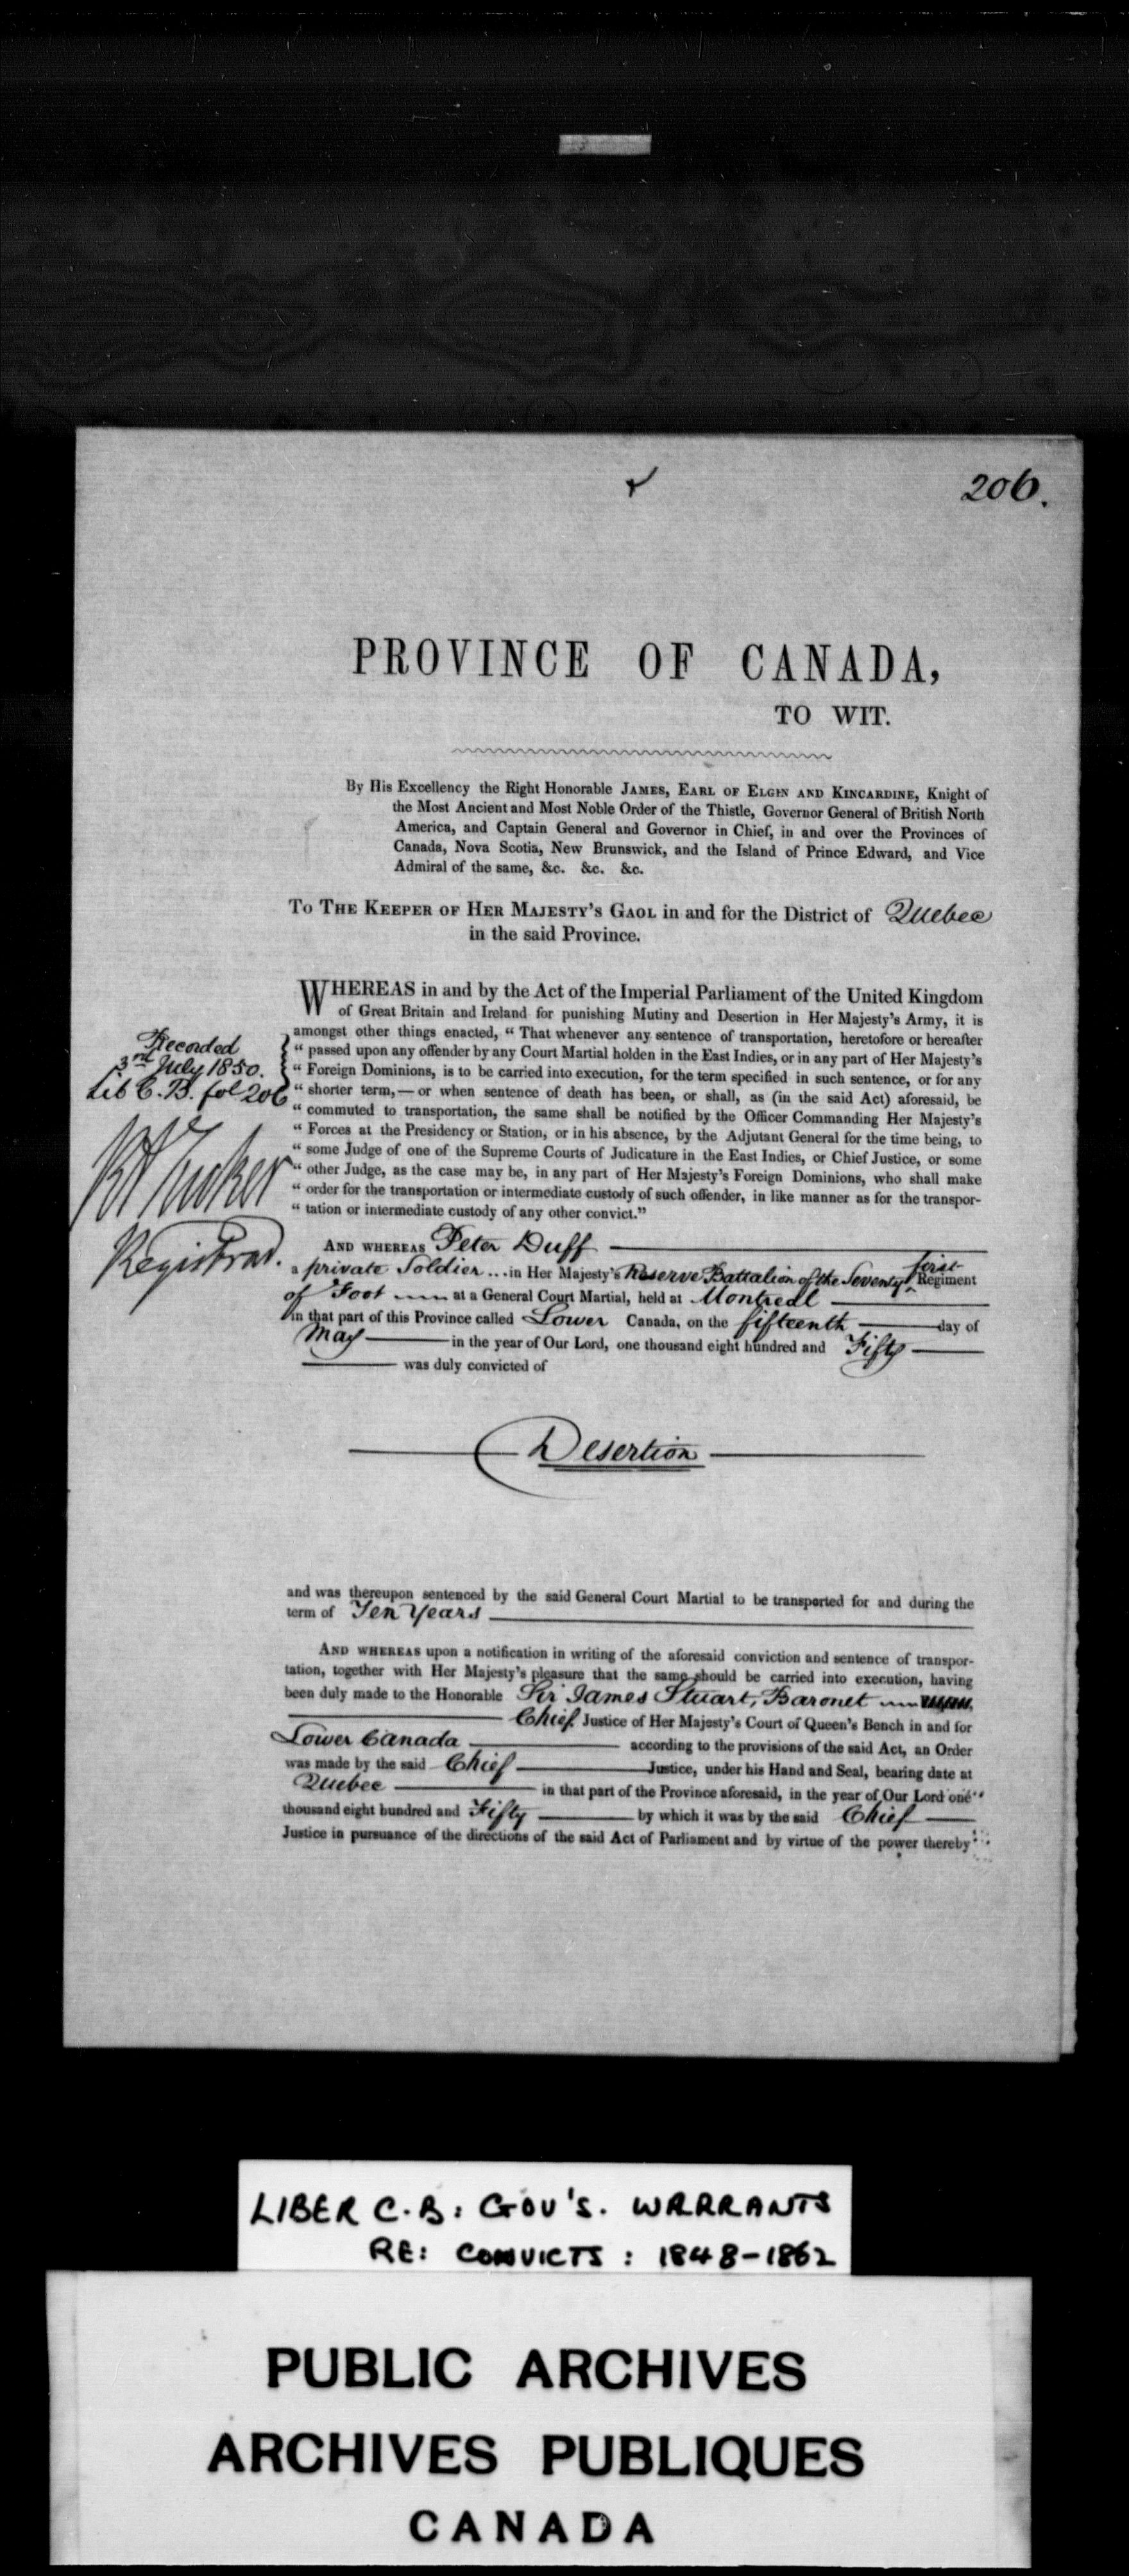 206.
PROVINCE OF CANADA,
TO WIT.
By His Excellency the Right Honorable James, Earl of Elgin and Kincardine, Knight of
the Most Ancient and Most Noble Order of the Thistle, Governor General of British North
America, and Captain General and Governor in Chief, in and over the Provinces of
Canada, Nova Scotia, New Brunswick, and the Island of Prince Edward, and Vice
Admiral of the same, &c. &c. &c.
To The Keeper of Her Majesty's Gaol in and for the District of Quebec
in the said Province.
WHEREAS in and by the Act of the Imperial Parliament of the United Kingdom
of Great Britain and Ireland for punishing Mutiny and Desertion in Her Majesty's Army, it is
amongst other things enacted, “ That whenever any sentence of transportation, heretofore or hereafter
“ passed upon any offender by any Court Martial holden in the East Indies, or in any part of Her Majesty's
“ Foreign Dominions, is to be carried into execution, for the term specified in such sentence, or for any
“ shorter term,— or when sentence of death has been, or shall, as (in the said Act) aforesaid, be
“ commuted to transportation, the same shall be notified by the Officer Commanding Her Majesty's
“ Forces at the Presidency or Station, or in his absence, by the Adjutant General for the time being, to
“ some Judge of one of the Supreme Courts of Judicature in the East Indies, or Chief Justice, or some
“ other Judge, as the case may be, in any part of Her Majesty's Foreign Dominions, who shall make
“ order for the transportation or intermediate custody of such offender, in like manner as for the transpor-
“ tation or intermediate custody of any other convict.”
Recorded
3rd July 1850.
Lib C. B. fol 206
Registrar.
And whereas Peter Duff
a private Soldier ... in Her Majesty's Reserve Battalion of the Seventy first Regiment
of Foot at a General Court Martial, held at Montreal
in that part of this Province called Lower Canada, on the fifteenth day of
May in the year of Our Lord, one thousand eight hundred and Fifty
was duly convicted of
Desertion
and was thereupon sentenced by the said General Court Martial to be transported for and during the
term of Ten Years
And whereas upon a notification in writing of the aforesaid conviction and sentence of transpor-
tation, together with Her Majesty's pleasure that the same should be carried into execution, having
been duly made to the Honorable Sir James Stuart, Baronet
Chief Justice of Her Majesty's Court of Queen's Bench in and for
Lower Canada according to the provisions of the said Act, an Order
was made by the said Chief Justice, under his Hand and Seal, bearing date at
Quebec in that part of the Province aforesaid, in the year of Our Lord one
thousand eight hundred and Fifty by which it was by the said Chief
Justice in pursuance of the directions of the said Act of Parliament and by virtue of the power thereby
LIBER C.B: GOV'S. WARRANTS
RE: CONVICTS : 1848-1862
PUBLIC ARCHIVES
ARCHIVES PUBLIQUES
CANADA